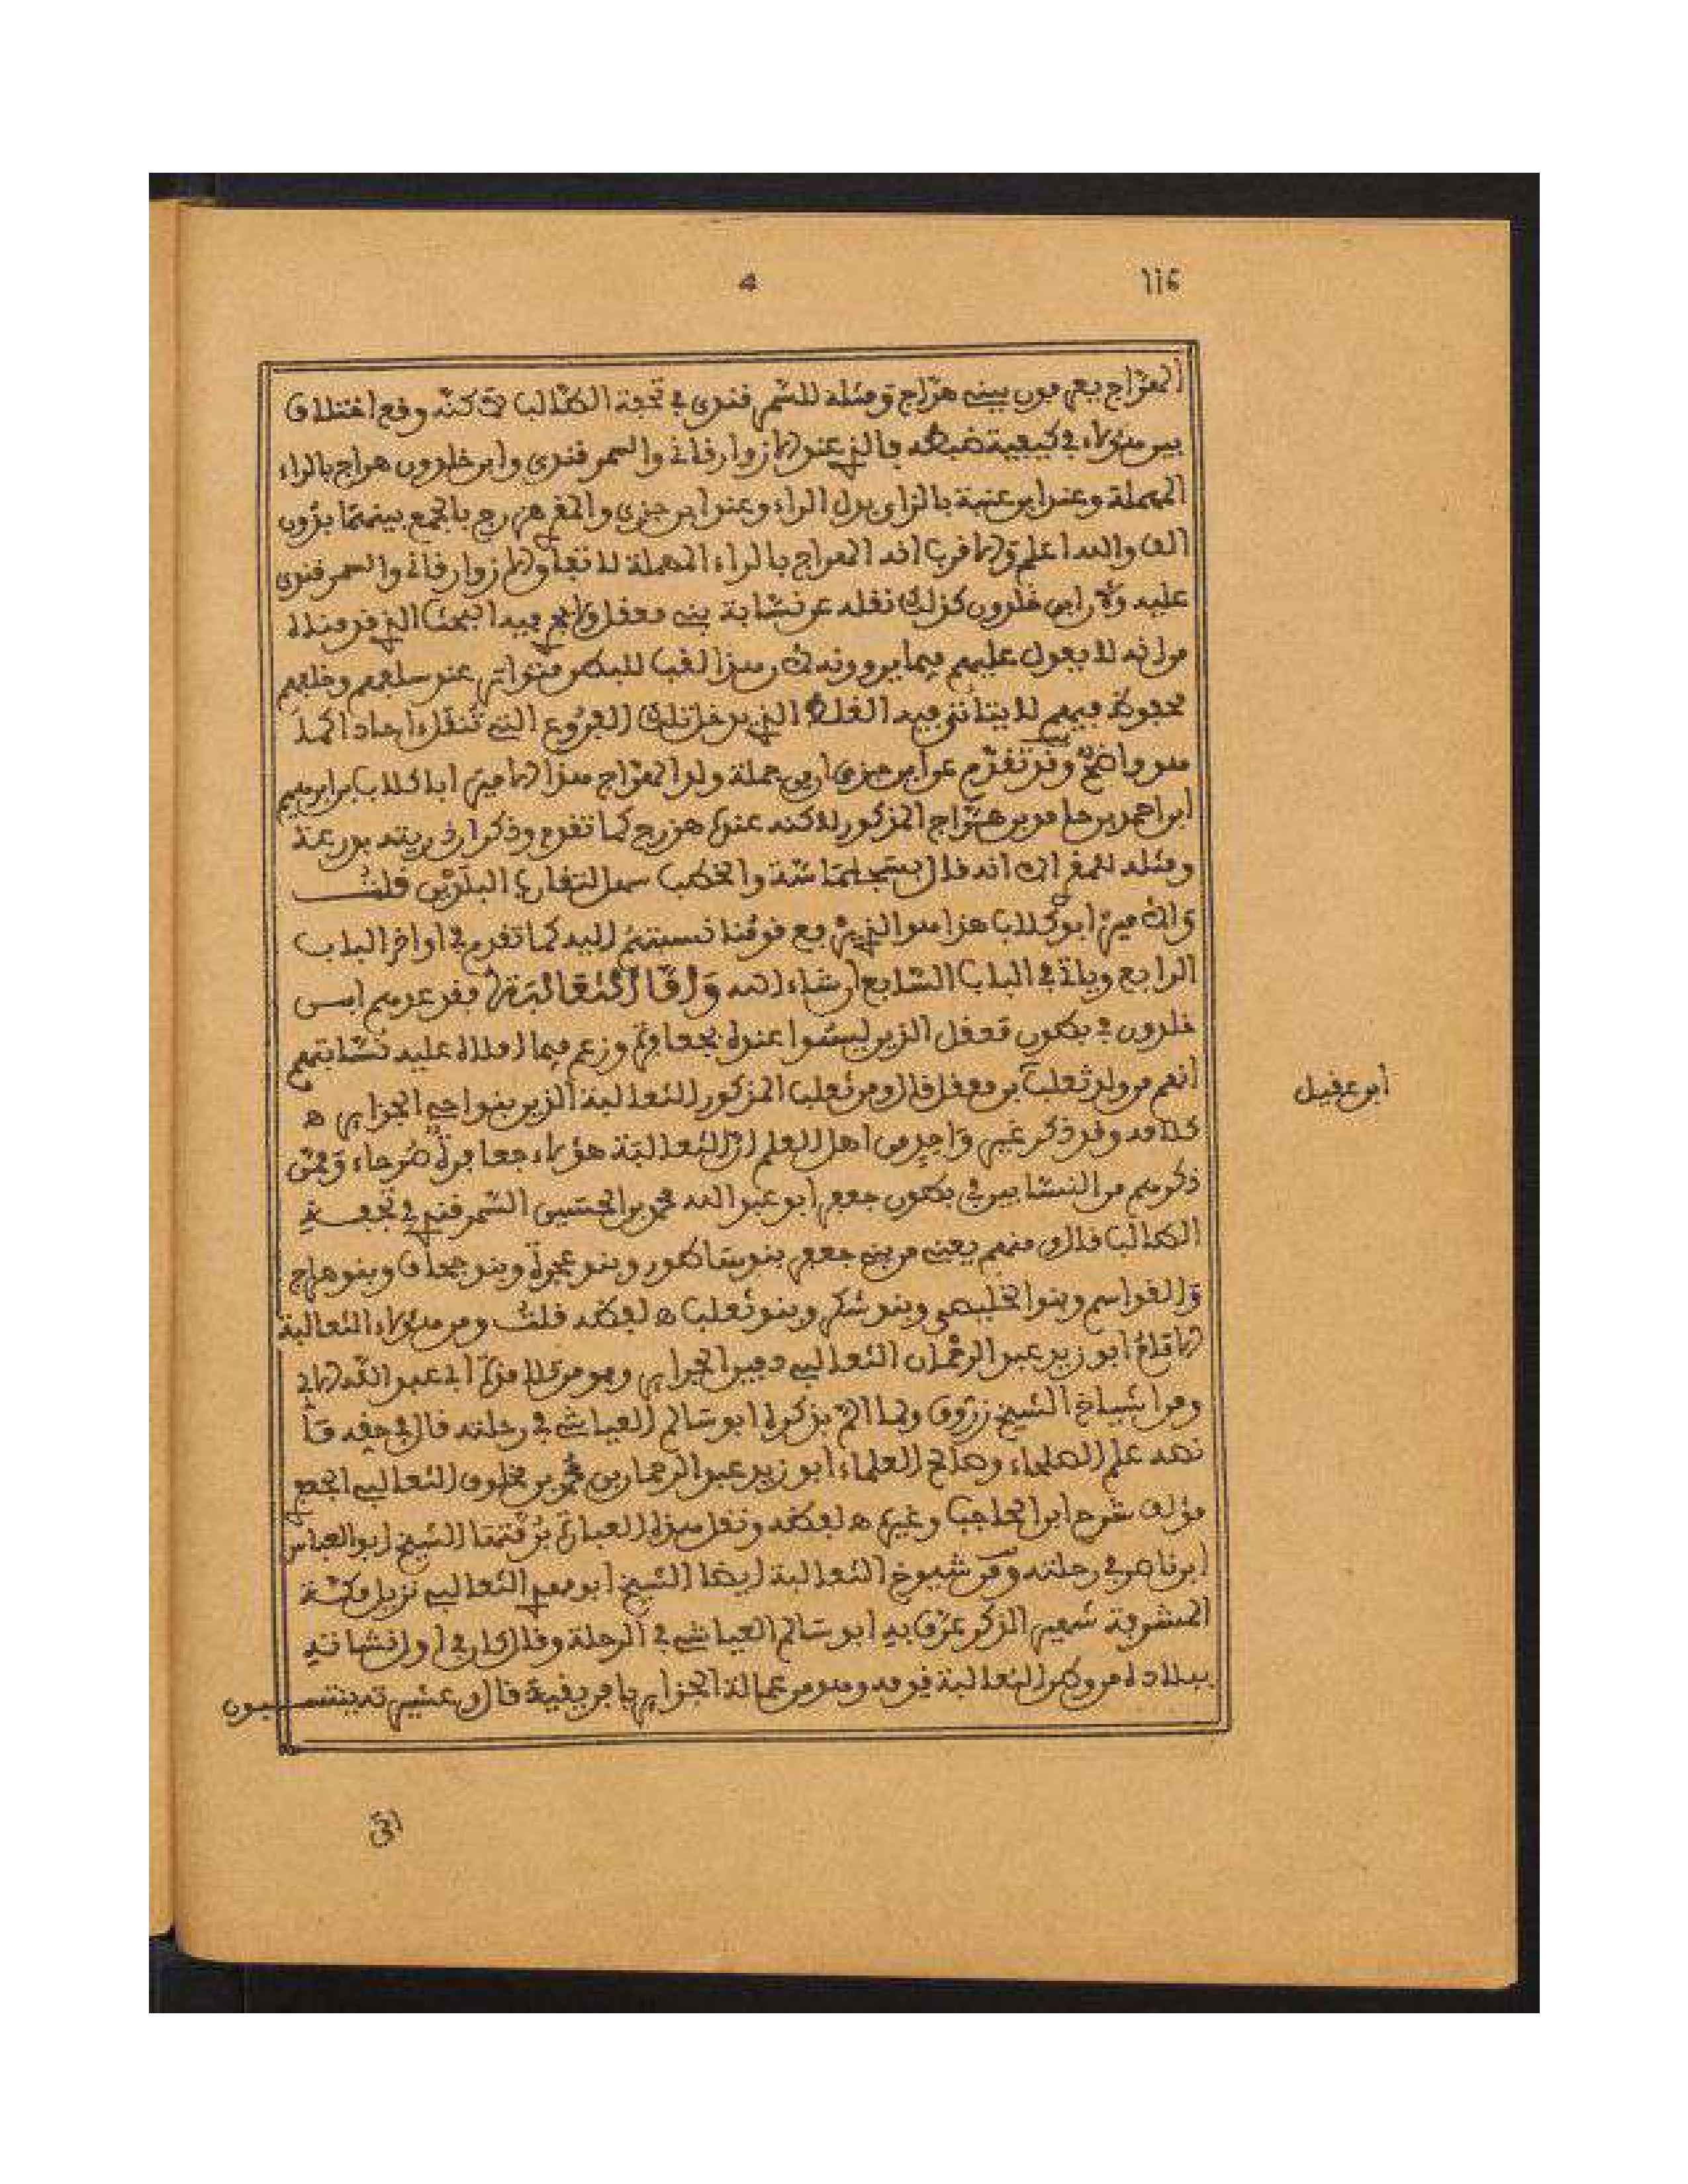 116
4
الهراج يعرفون ببني هراج ومثله للسمرقندي في تحفة الطالب لكنه وقع اختلاف
بين هؤلاء في كيفية ضبطه فالذي عند الازوارقاني والسمرقندي وابن خلدون هراج بالراء
المهملة وعند ابن عنبة بالزاي بدل الراء وعند ابن جزي والمقري هزرج بالجمع بينهما بدون
الف والله اعلم والاقرب انه الهراج بالراء المهملة لاتفاق الازوارقاني والسمرقندي
عليه ولان ابن خلدون كذلك نقله عن نسابة بني معقل ولا يجري فيه البحث الذي قدمناه
من انه لا يعول عليهم فيما يروونه لان هذا لقب للبطن متواتر عند سلفهم وخلفهم
محفوظ فيهم لا يتأتى فيه الغلط الذي يدخل تلك الفروع التي تنقل احادا كما
هو واضح وقد تقدم عن ابن جزي ان من جملة ولد الهراج هذا الامير ابا طلاب بن ابراهيم
ابن احمد بن حامد بن هراج المذكور لاكنه عنده هزرج كما تقدم وذكر ان ذريته بورعة
ومثله للمقري الا انه قال بسجلماسة والخطب سهل لتقارب البلدين قلت
والامير ابو طلاب هذا هو الذي رفع قومنا نسبتهم اليه كما تقدم في اواخر الباب
الرابع وياتي في الباب السابع ان شاء الله واما الثعالبة فقد عدهم ابن
خلدون في بطون معقل الذين ليسوا عنده بجعافرة وزعم فيما املاه عليه نسابتهم
انهم من ولد ثعلب بن معقل قال ومن ثعلب المذكور الثعالبة الذين بنواحي الجزاير ه
كلامه وقد ذكر غير واحد من اهل العلم ان الثعالبة هؤلاء جعافرة صرحاء وممن
ذكرهم من النسابين في بطون جعفر ابو عبد الله محمد بن الحسين السمرقندي في تحفة
الطالب قال ومنهم يعني من بني جعفر بنو شاكور وبنو عجرة وبنو جحاف وبنو هراج
والقواسم وبنو الخليصي وبنو شكر وبنو ثعلب ه لفظه قلت ومن هؤلاء الثعالبة
الامام ابو زيد عبد الرحمان الثعالبي دفين الجزاير وهو من تلامذة ابي عبد الله الابي
ومن اشياخ الشيخ زروق ولما الم بذكره ابو سالم العياشي في رحلته قال في حقه ما
نصه علم الصلحاء وصالح العلماء ابو زيد عبد الرحمان بن محمد بن مخلوف الثعالبي الجعفري
مؤلف شرح ابن الحاجب وغيره ه لفظه ونقل هذه العبارة برمتها الشيخ ابو العباس
ابن ناصر في رحلته ومن شيوخ الثعالبة ايضا الشيخ ابو مهدي الثعالبي نزيل مكة
المشرفة شهير الذكر عرف به ابو سالم العياشي في الرحلة وقال كان في اول نشأته
ببلاده من وطن الثعالبة قومه وهو من عمالة الجزاير بافريقية قال وعشيرته ينتسبون
ابن عقيل
الى